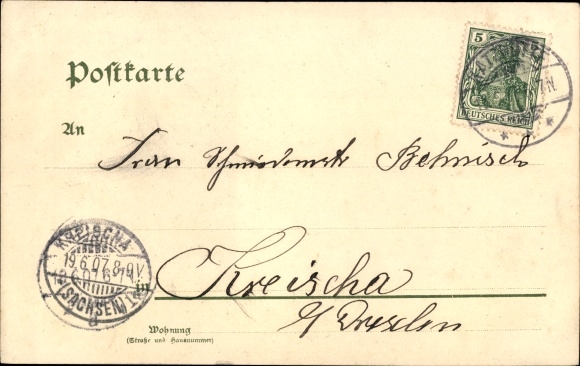 Postkarte
5
DEUTSCHES REICH
An
Frau Schmiedemstr Behnisch
KREISCHA
19.6.07. 8-9V.
(SACHSEN)
d
in Kreischa
b/Dresden
Wohnung
(Straße und Hausnummer)